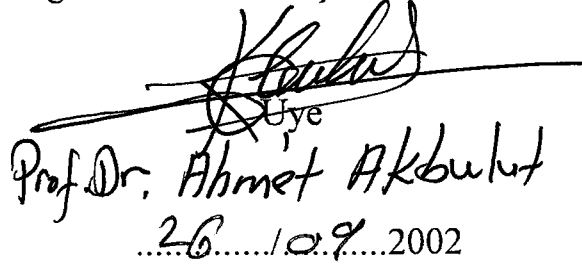 Üye
Prof.Dr. Ahmet Akbulut
......26....../.09.....2002